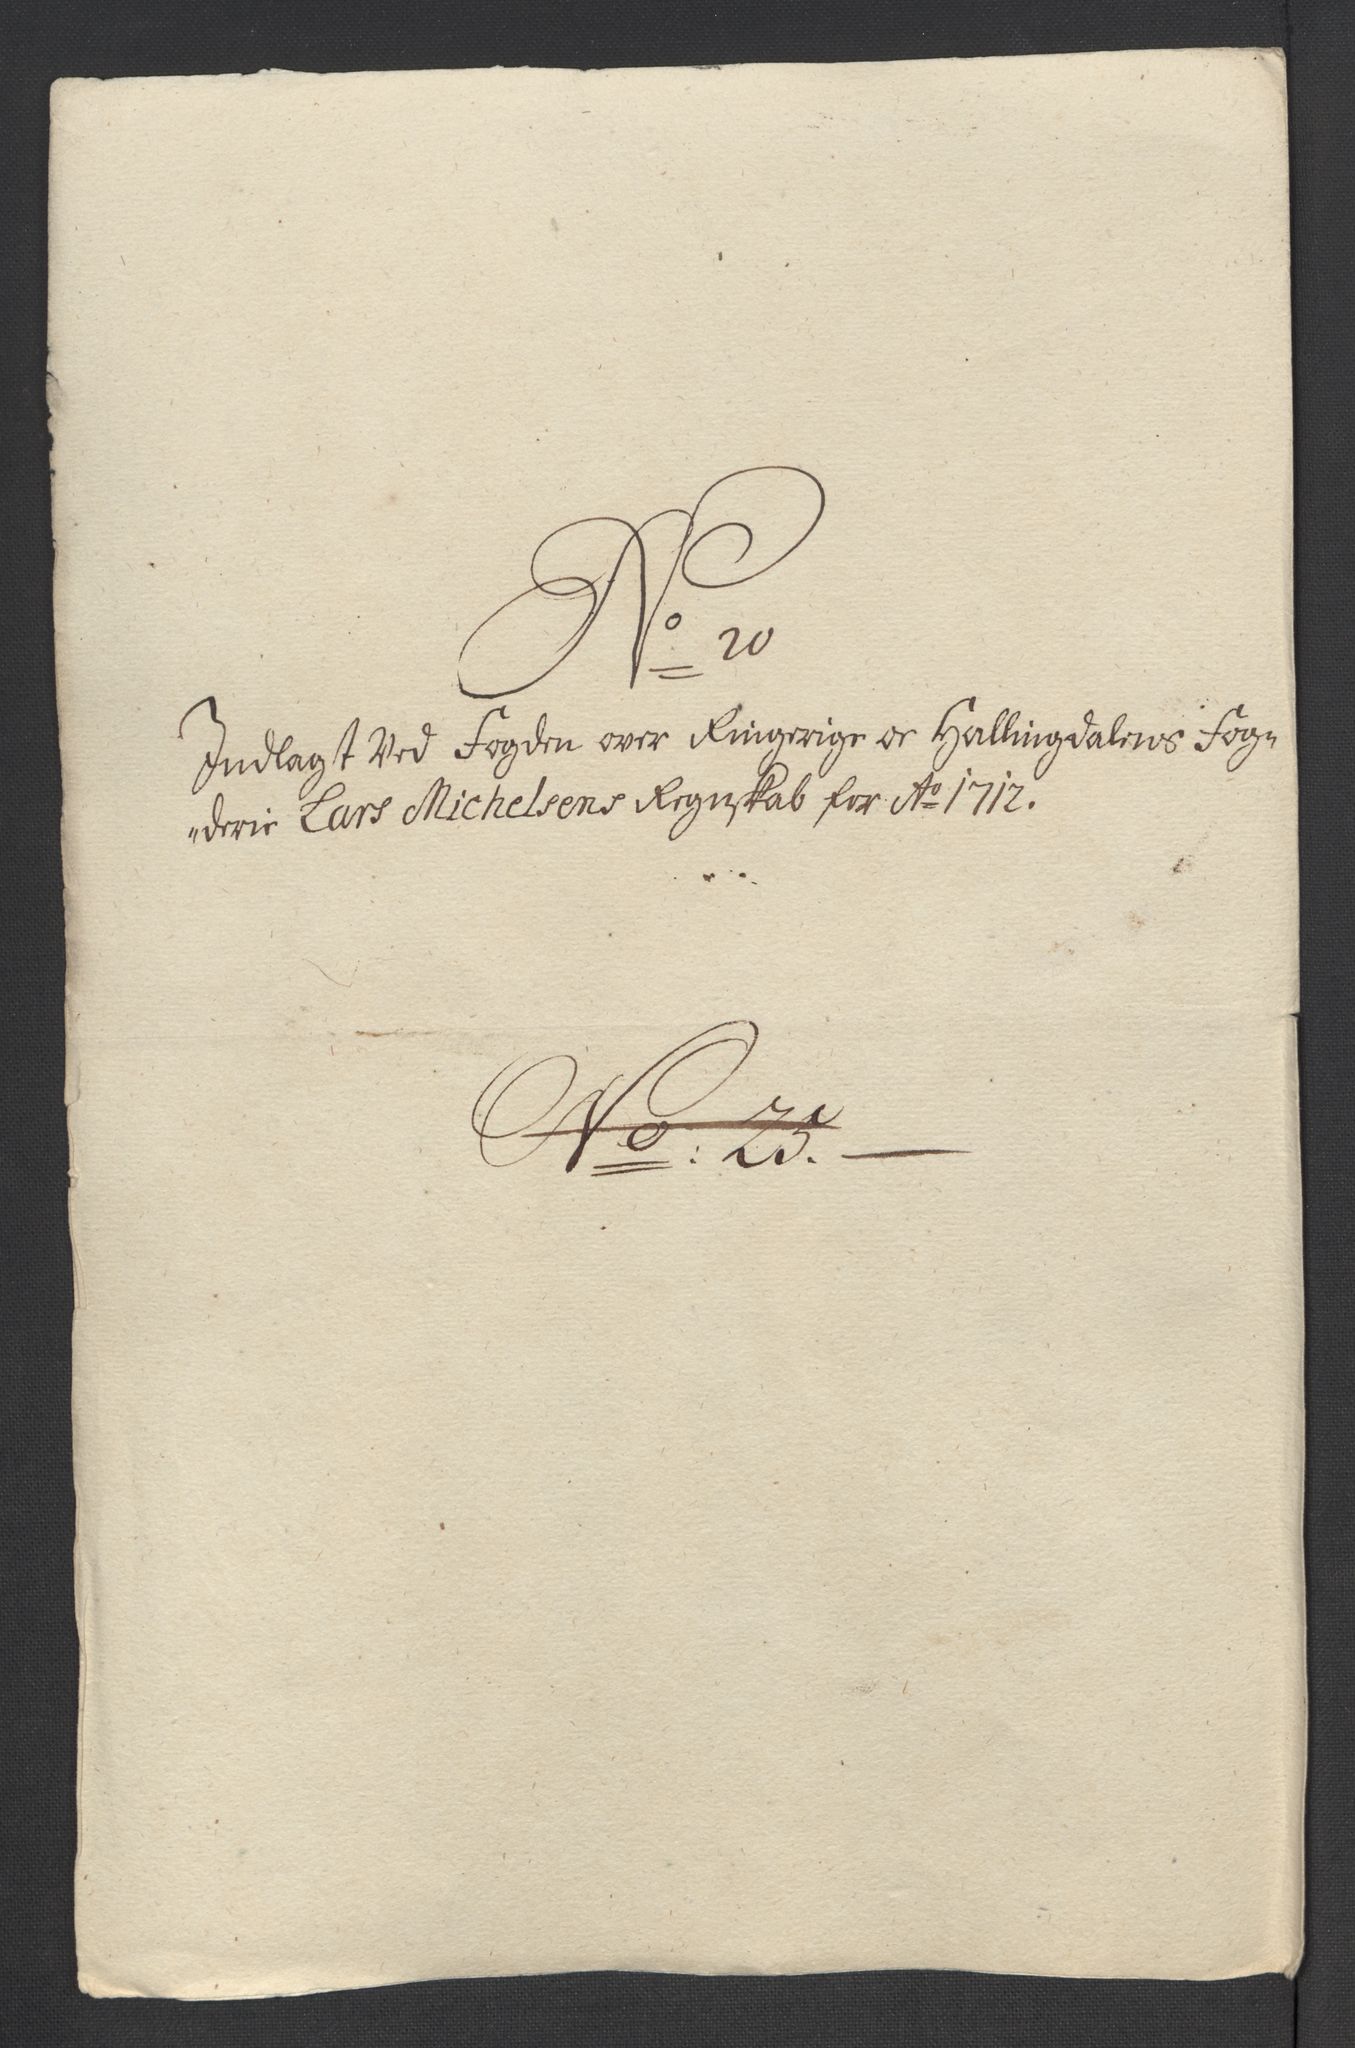 No 20
Indlagt Ved Fogden over Ringerige oc Hallingdalens Fog„
„derie Lars Michelsens Regnskab for Ao 1712.
No: 25.